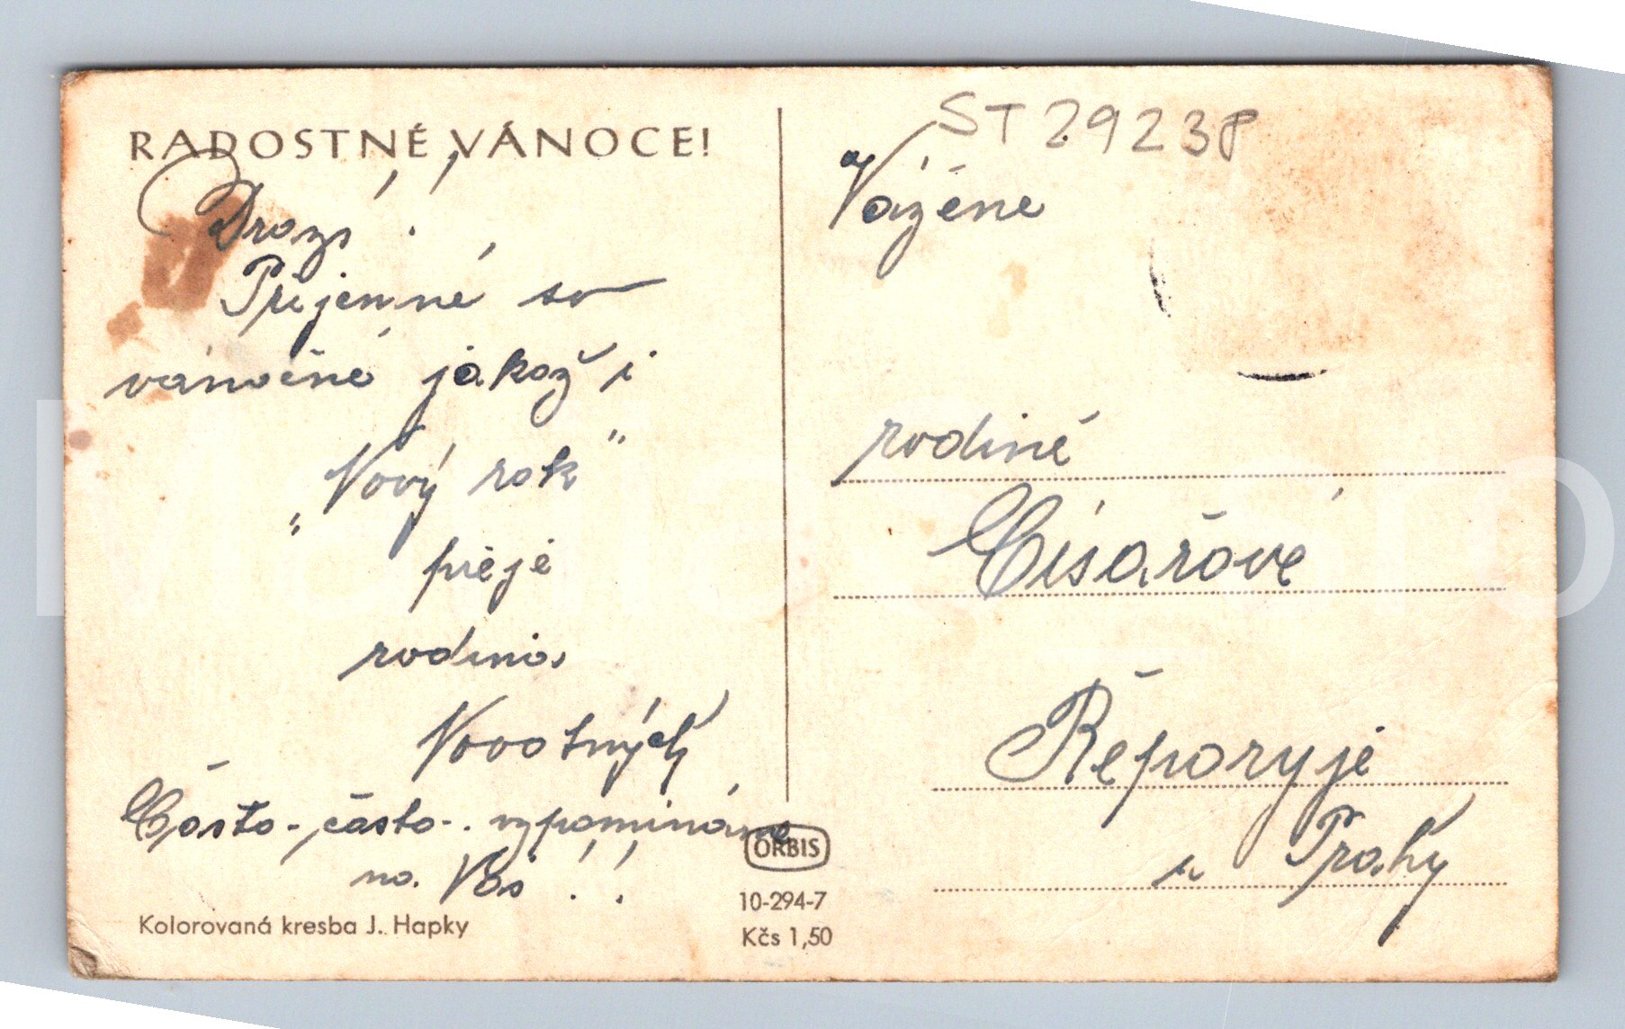 RADOSTNÉ VÁNOCE!
Drazí!
Příjemné sv
vánočné jakož i
„Nový rok"
přeje
rodina
Novotných
Často-často-. vzpomináme
na Vás!!
Kolorovaná kresba J. Hapky
ORBIS
10-294-7
Kčs 1,50
ST 29238
Vážené
rodině
Císařové
Řeporyje
u Prahy